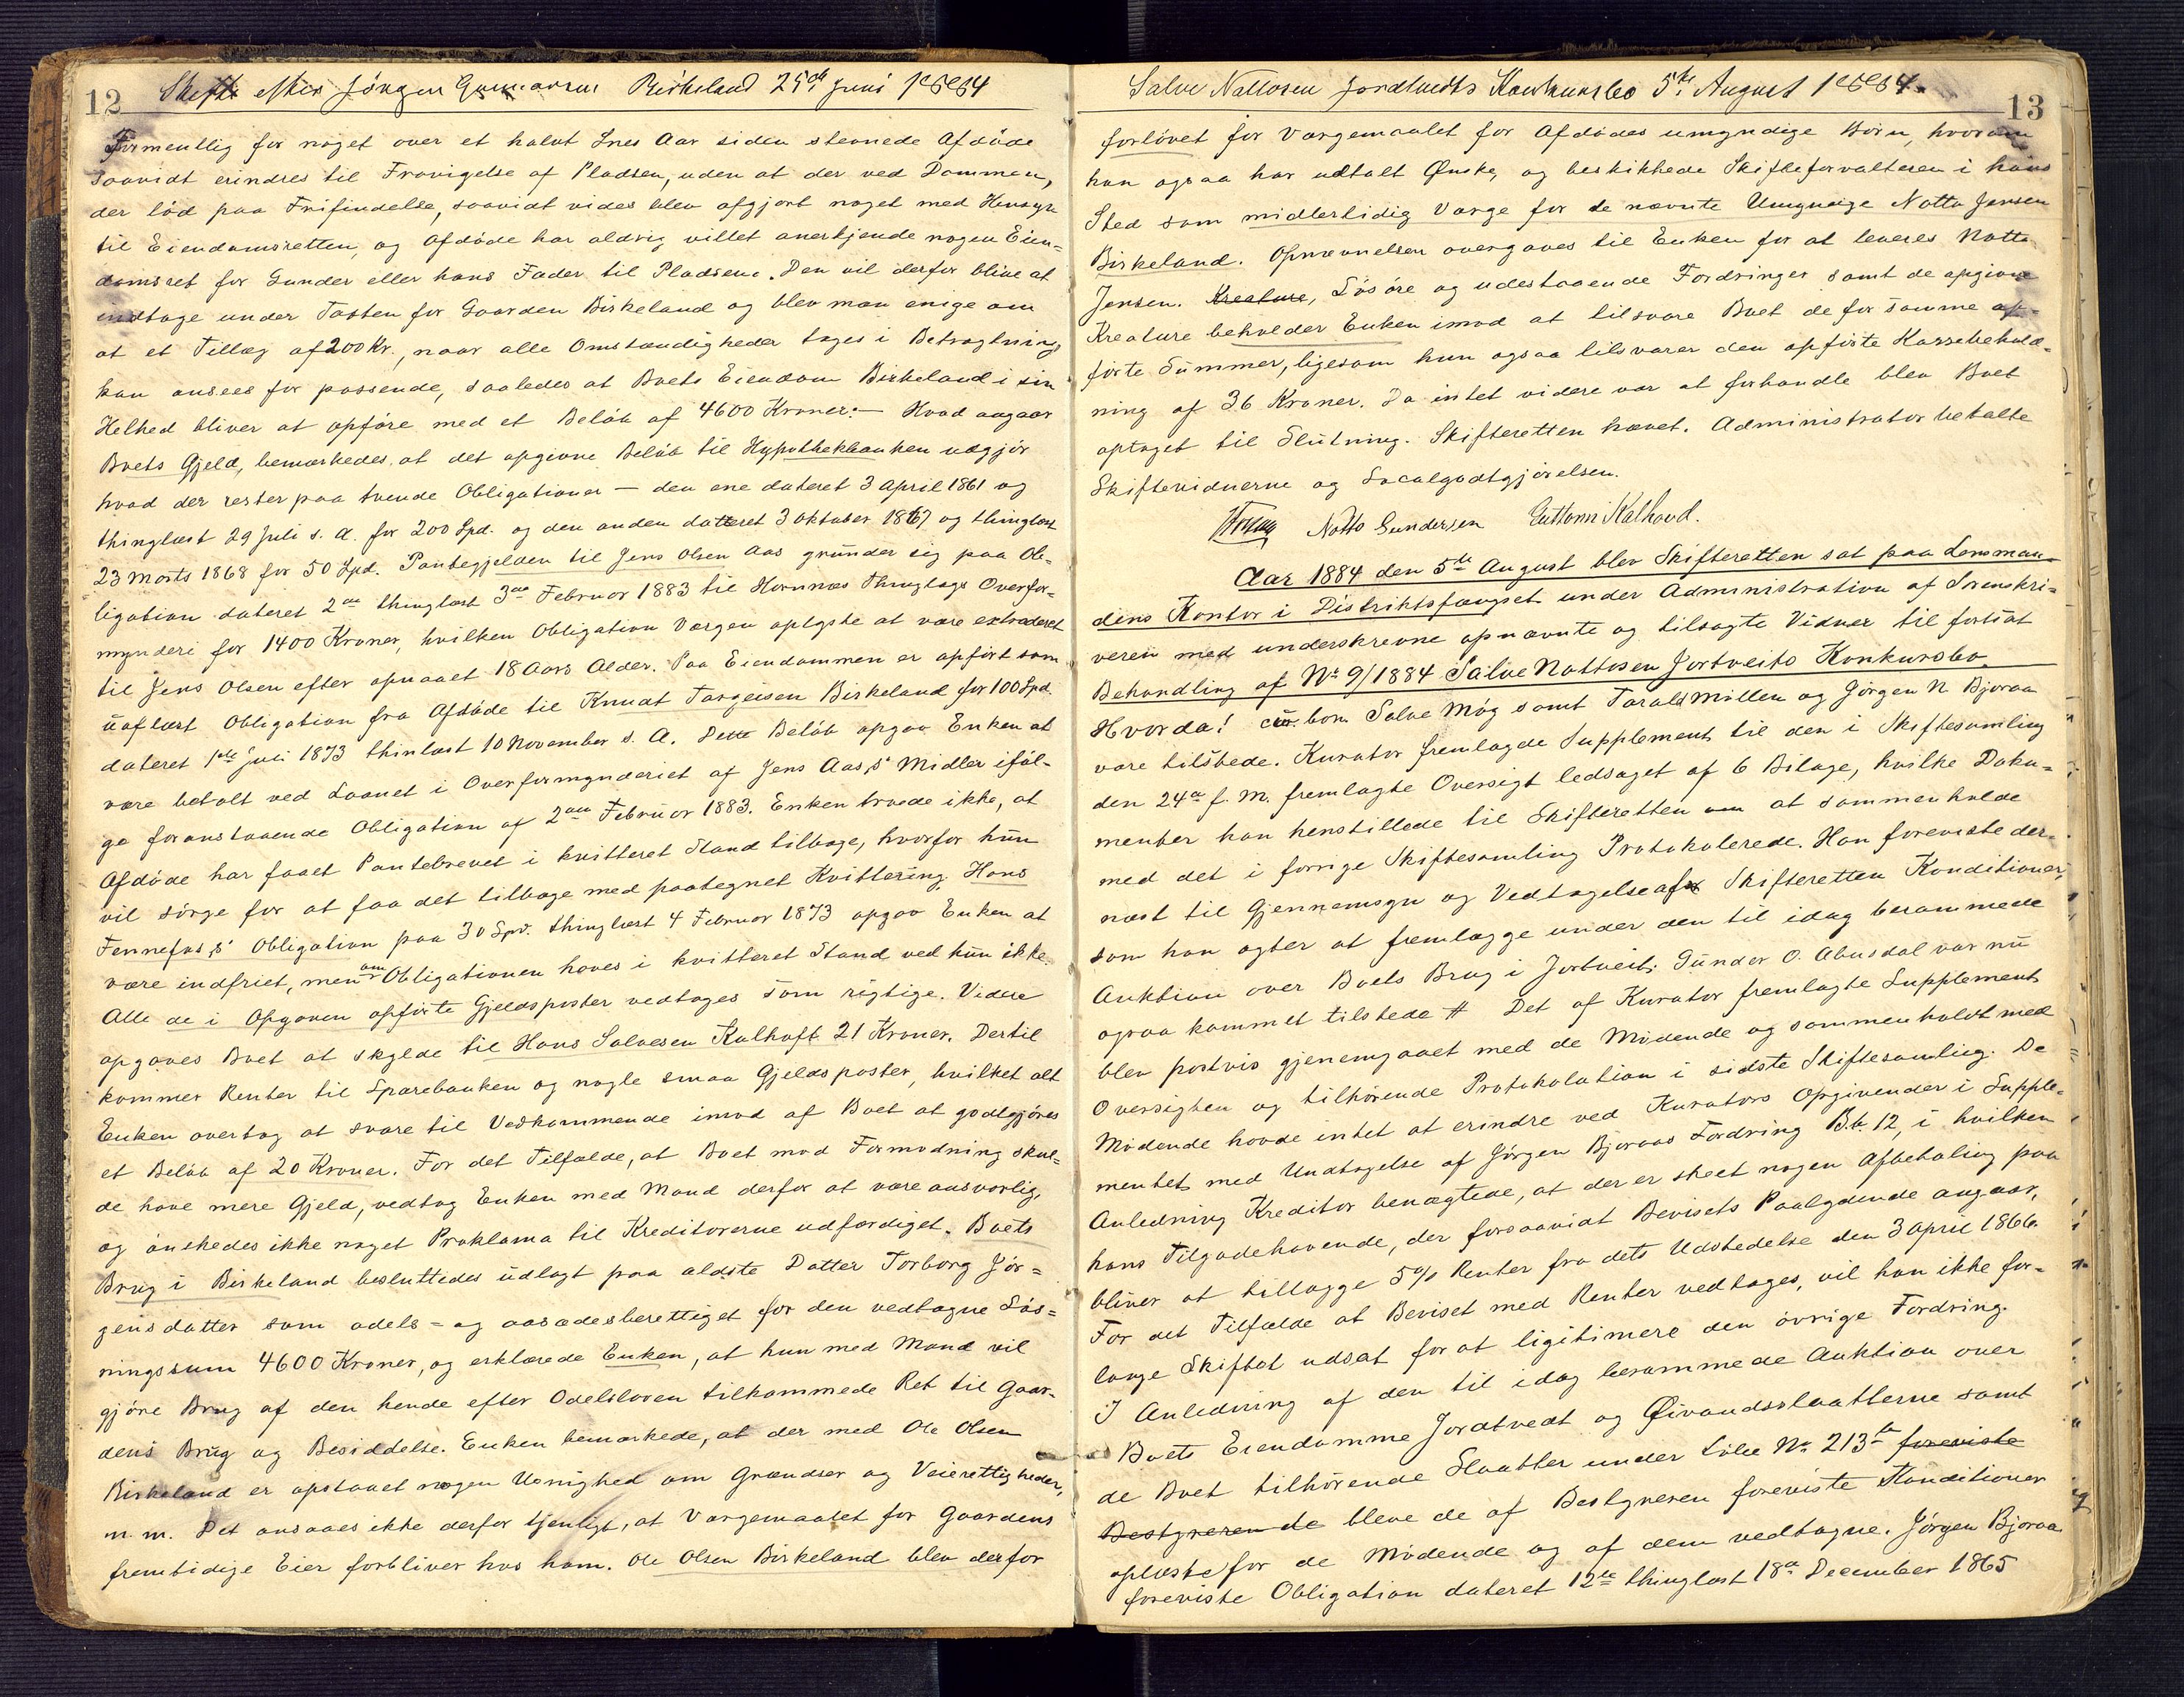 12 Skifte efter Jörgen Gunnarsen Birkeland 25de Juni 1884
Formentlig for noget over et halvt Snes Aar siden stevnede Afdöde
saavidt erindres til Fravigelse af Pladsen, uden at der ved Dommen,
der löd paa Frifindelse, saavidt vides blev afgjort noget med Hensyn
til Eiendomsretten, og Afdöde har aldrig villet anerkjende nogen Eien=
domsret for Gunder eller hans Fader til Pladsene. Den vil derfor blive at
indtage under Taxten for Gaarden Birkeland og blev man enige om
at et Tillæg af 200 Kr., naar alle Omstændigheder tages i Betragtning
kan ansees for passende, saaledes at Boets Eiendom Birkeland i sin
Helhed bliver at opföre med et Belöb af 4600 Kroner:— Hvad angaar
Boets Gjeld, bemærkedes at det opgivne Belöb til Hypothekbanken udgjör
hvad der rester paa tvende Obligationer — den ene dateret 3 April 1861 og
thinglæst 29 Juli s. A. for 200 Spd. og den anden dateret 3 Oktober 1867 og thinglæst
23 Marts 1868 for 50 Spd. Pantegjelden til Jens Olsen Aas grunder sig paa Ob=
ligation dateret 2den thinglæst 3die Februar 1883 til Hornnæs Thinglags Overfor=
mynderi for 1400 Kroner, hvilken Obligation Værgen oplyste at være extraderet
til Jens Olsen efter opnaaet 18 Aars Alder. Paa Eiendommen er opfört som
uaflæst Obligation fra Afdöde til Knud Targeisen Birkeland for 100 Spd.
dateret 1ste Juli 1873 thinlæst 10 November s. A. Dette Belöb opgav Enken at
være betalt ved Laanet i Overformynderiet af Jens Aas,s' Midler iföl=
ge foranstaaende Obligation af 2den Februar 1883. Enken troede ikke, at
Afdöde har faaet Pantebrevet i kvitteret Stand tilbage, hvorfor hun
vil sörge for at faa det tilbage med paategnet Kvittering. Hans
Fennefos,s' Obligation paa 30 Spd. thinglæst 4 Februar 1873 opgav Enken at
være indfriet, men om Obligationen haves i kvitteret Stand ved hun ikke.
Alle de i Opgaven opförte Gjeldsposter vedtoges som rigtige. Videre
opgaves Boet at skylde til Hans Salvesen Kalhaft 21 Kroner. Dertil
kommer Renter til Sparebanken og nogle smaa Gjeldsposter, hvilket alt
Enken overtog at svare til Vedkommende imod af Boet at godtgjöres
et Belöb af 20 Kroner. For det Tilfælde, at Boet mod Formodning skul=
de have mere Gjeld, vedtog Enken med Mand derfor at være ansvarlig,
og önskedes ikke noget Proklama til Kreditorerne udfærdiget. Boets
Brug i Birkeland besluttedes udlagt paa ældste Datter Torborg Jör=
gensdatter som odels= og aasædesberettiget for den vedtagne Lös=
ningssum 4600 Kroner, og erklærede Enken, at hun med Mand vil
gjöre Brug af den hende efter Odelsloven tilkommede Ret til Gaar=
dens Brug og Besiddelse. Enken bemærkede, at der med Ole Olsen
Birkeland er opstaaet nogen Uenighed om Grændser og Veirettigheder,
m. m. Det ansaaes ikke derfor tjenligt, at Værgemaalet for Gaardens
fremtidige Eier forbliver hos ham. Ole Olsen Birkeland blev derfor
Salve Nattosen Jordtvedts Konkursbo 5te August 1884. 13
forlövet for Værgemaalet for Afdödes umyndige Börn, hvorom
han ogsaa har udtalt Önske, og beskikkede Skifteforvalteren i hans
Sted som midlertidig Værge for de nævnte Umyndige Natto Jensen
Birkeland. Opnævnelsen overgaves til Enken for at leveres Natto
Jensen. Kreature, Lösöre og udestaaende Fordringer samt de opgivne
Kreature beholder Enken imod at tilsvare Boet de for samme op=
förte Summer, ligesom hun ogsaa tilsvarer den opförte Kassebehold=
ning af 36 Kroner. Da intet videre var at forhandle blev Boet
optaget til Slutning. Skifteretten hævet. Administrator betalte
Skiftevidnerne og Localgodtgjörelsen.
Natto Gundersen Guttorm Kalhovd.
Aar 1884 den 5te August blev Skifteretten sat paa Lensman=
dens Kontor i Distriktsfængset under Administration af Sorenskri=
veren med underskrevne opnævnte og tilsagte Vidner til fortsat
Behandling af No 9/1884 Salve Nattosen Jortveits Konkursbo.
Hvorda! cur. bon. Salve Mög samt Tarald Möllen og Jörgen N Bjoraa
vare tilstede. Kurator fremlagde Supplement til den i Skiftesamling
den 24de f. M. fremlagte Oversigt ledsaget af 6 Bilage, hvilke Doku=
menter han henstillede til Skifteretten om at sammenholde
med det i forrige Skiftesamling Protokolerede. Han foreviste der=
næst til Gjennemsyn og Vedtagelse af Skifteretten Konditioner,
som han agter at fremlægge under den til idag berammede
Auktion over Boets Brug i Jortveit. Gunder O. Abusdal var nu
ogsaa kommet tilstede # Det af Kurator fremlagte Supplement
blev postvis gjenemgaaet med de Mödende og sammenholdt med
Oversigten og tilhörende Protokolation i sidste Skiftesamling. De
Mödende havde intet at erindre ved Kurators Opgivender i Supple=
mentet med Undtagelse af Jörgen Bjoraas Fordring B.b. 12, i hvilken
Anledning Kreditor benægtede, at der er skeet nogen Afbetaling paa
hans Tilgodehavende, der forsaavidt Bevisets Paalydende angaar,
bliver at tillægge 5% Renter fra dets Udstedelse den 3 April 1866.
For det Tilfælde at Beviset med Renter vedtages, vil han ikke for=
lange Skiftet udsat for at ligitimere den övrige Fordring.
I Anledning af den til idag berammede Auktion over
Boets Eiendomme Jordtvedt og Öivandsslaatterne samt
de Boet tilhörende Slaatter under Löbe No 213te foreviste
Bestyreren de bleve de af Bestyreren foreviste Konditioner
oplæste for de Mödende og af dem vedtagne. Jörgen Bjoraa
foreviste Obligation dateret 12te thinglæst 18de December 1865